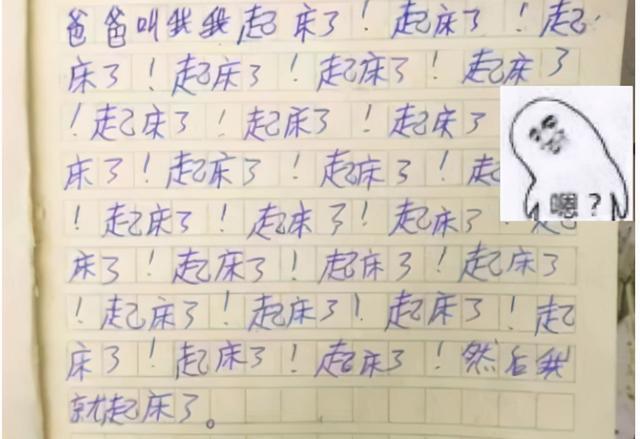 爸爸叫我我起床了！起床了！起
床了！起床了！起床了！起床了
！起床了！起床了！起床了
床了！起床了！起床了！起
！起床了！起床了！起床了！起
床了！起床了！起床了！起床了
！起床了！起床了！起床了！起
床了！起床了！起床了！然后我
就起床了。
嗯？